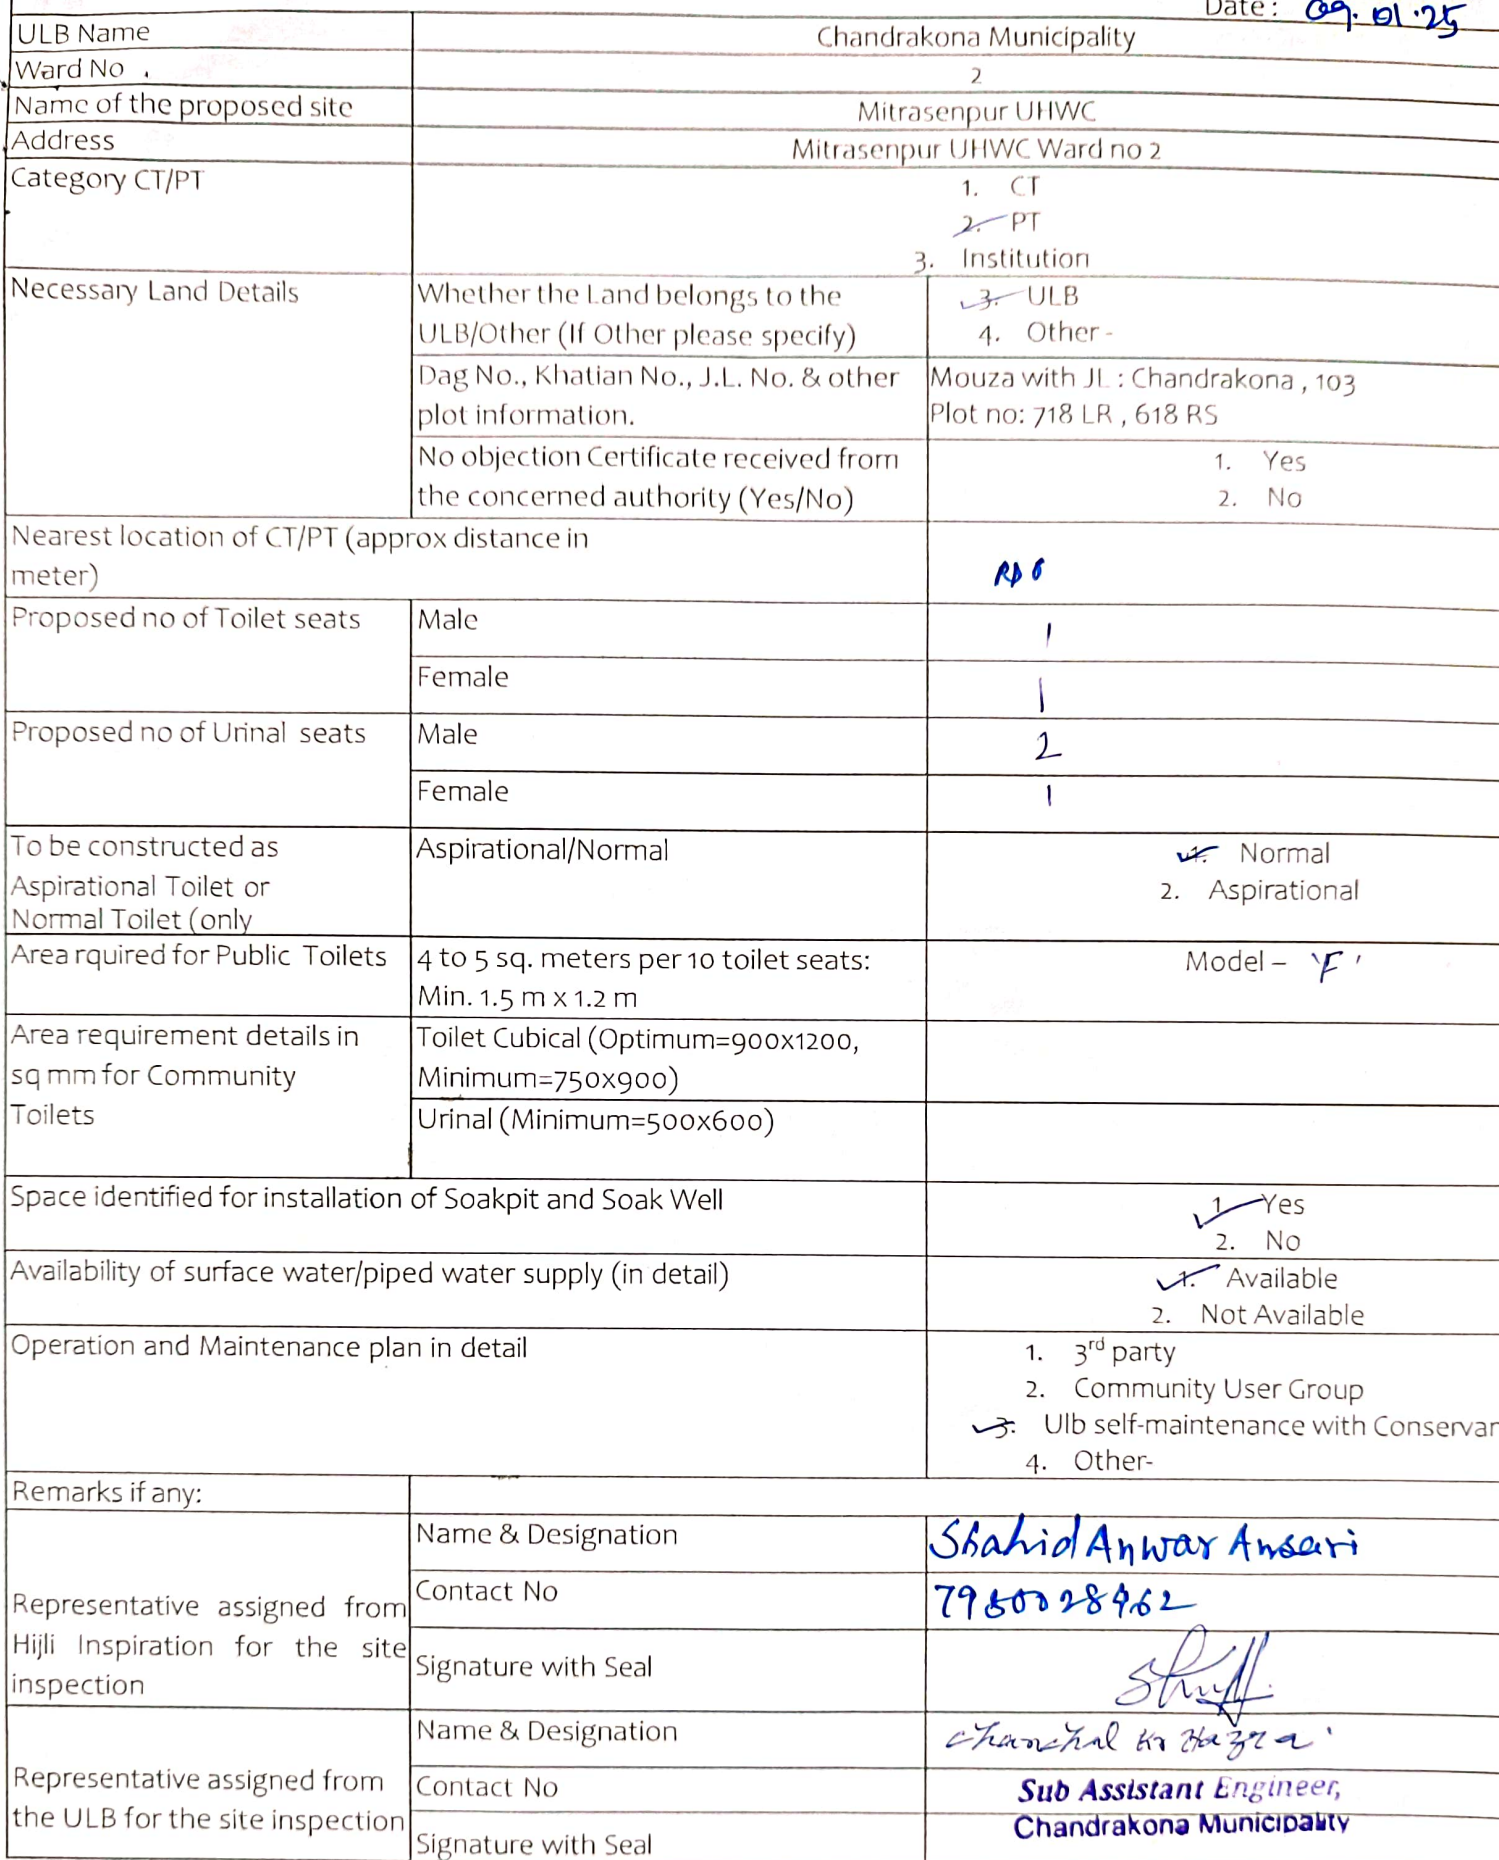 Date: 09.01.25
ULB Name
Chandrakona Municipality
Ward No
2
Name of the proposed site
Mitrasenpur UHWC
Address
Mitrasenpur UHWC Ward no 2
Category CT/PT
1. CT
2. PT
3. Institution
Necessary Land Details
Whether the Land belongs to the
ULB/Other (If Other please specify)
3. ULB
4. Other -
Dag No., Khatian No., J.L. No. & other
plot information.
Mouza with JL : Chandrakona , 103
Plot no: 718 LR , 618 RS
No objection Certificate received from
the concerned authority (Yes/No)
1. Yes
2. No
Nearest location of CT/PT (approx distance in
meter)
Proposed no of Toilet seats
Male
1
Female
1
Proposed no of Urinal seats
Male
2
Female
1
To be constructed as
Aspirational Toilet or
Normal Toilet (only
Aspirational/Normal
1. Normal
2. Aspirational
Area rquired for Public Toilets
4 to 5 sq. meters per 10 toilet seats:
Min. 1.5 m x 1.2 m
Model – 'F'
Area requirement details in
sq mm for Community
Toilets
Toilet Cubical (Optimum=900x1200,
Minimum=750x900)
Urinal (Minimum=500x600)
Space identified for installation of Soakpit and Soak Well
1. Yes
2. No
Availability of surface water/piped water supply (in detail)
1. Available
2. Not Available
Operation and Maintenance plan in detail
1. 3rd party
2. Community User Group
3. Ulb self-maintenance with Conservan
4. Other-
Remarks if any:
Representative assigned from
Hijli Inspiration for the site
inspection
Name & Designation
Shahid Anwar Ansari
Contact No
Signature with Seal
Representative assigned from
the ULB for the site inspection
Name & Designation
Chanchal Kr Hazra
Contact No
Sub Assistant Engineer,
Chandrakona Municipality
Signature with Seal